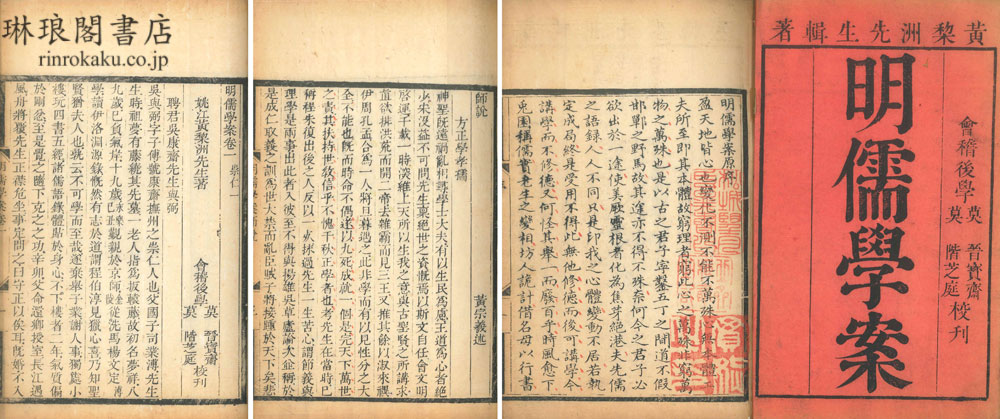 琳琅閣書店
rinrokaku.co.jp
黃棃洲先生輯著
會稽後學
莫 晉寶齋
莫 階芝庭
校刊
明儒學案
明儒學案原序
盈天地皆心也變化不測不能不萬殊心無本體工
夫所至即其本體故窮理者窮此心之萬殊非窮萬
物之萬殊也是以古之君子寧鑿五丁之閒道不假
邯鄲之野馬故其途亦不得不殊奈何今之君子必
欲出於一途使美厥靈根者化為焦芽絕港夫先儒
之語錄人人不同只是印我之心體變動不居若執
定成局終是受用不得此無他修德而後可講學今
講學而不修德又何怪其舉一而廢百乎時風愈下
兎園稱儒實老生之變相坊人詭計借名母以行書
師說
黃宗羲述
方正學孝孺
神聖既遠禍亂相尋學士大夫有以生民為慮王道為心者絕
少宋沒益不可問先生稟絕世之資慨焉以斯文自任會文明
啟運千載一時深維上天所以生我之意與古聖賢之所講求
直欲排洪荒而開二帝去雜霸而見三王又推其餘以淑來禩
伊周孔孟合為一人將旦暮遇之此非學而有以見性分之大
全不能也既而時命不偶遂以九死成就一個是完天下萬世
之責其扶持世教信乎不愧千秋正學者也考先生在當時已
稱程朱復出後之人反以一死抹過先生一生苦心謂節義與
理學是兩事出此者入彼至不得與揚雄吳草廬論次並稱於
是成仁取義之訓為世大禁而亂臣賊子將接踵於天下矣悲
明儒學案卷一 崇仁一
姚江黃棃洲先生著
會稽後學
莫 晉寶齋
莫 階芝庭
校刊
聘君吳康齋先生與弼
吳與弼字子傅號康齋撫州之崇仁人也父國子司業溥先生
生時祖夢有藤繞其先墓一老人指為扳轅藤故初名夢祥八
九歲已負氣岸十九歲永樂己丑覲親於京師金陵從洗馬楊文定溥
學讀伊洛淵源錄慨然有志於道謂程伯淳見獵心喜乃知聖
賢猶夫人也孰云不可學而至哉遂棄舉子業謝人事獨處小
樓玩四書五經諸儒語錄體貼於身心不下樓者二年氣質偏
於剛忿至是覺之隨下克之之功辛卯父命還鄉授室長江遇
風舟將覆先生正襟危坐事定問之曰守正以俟耳既婚不入